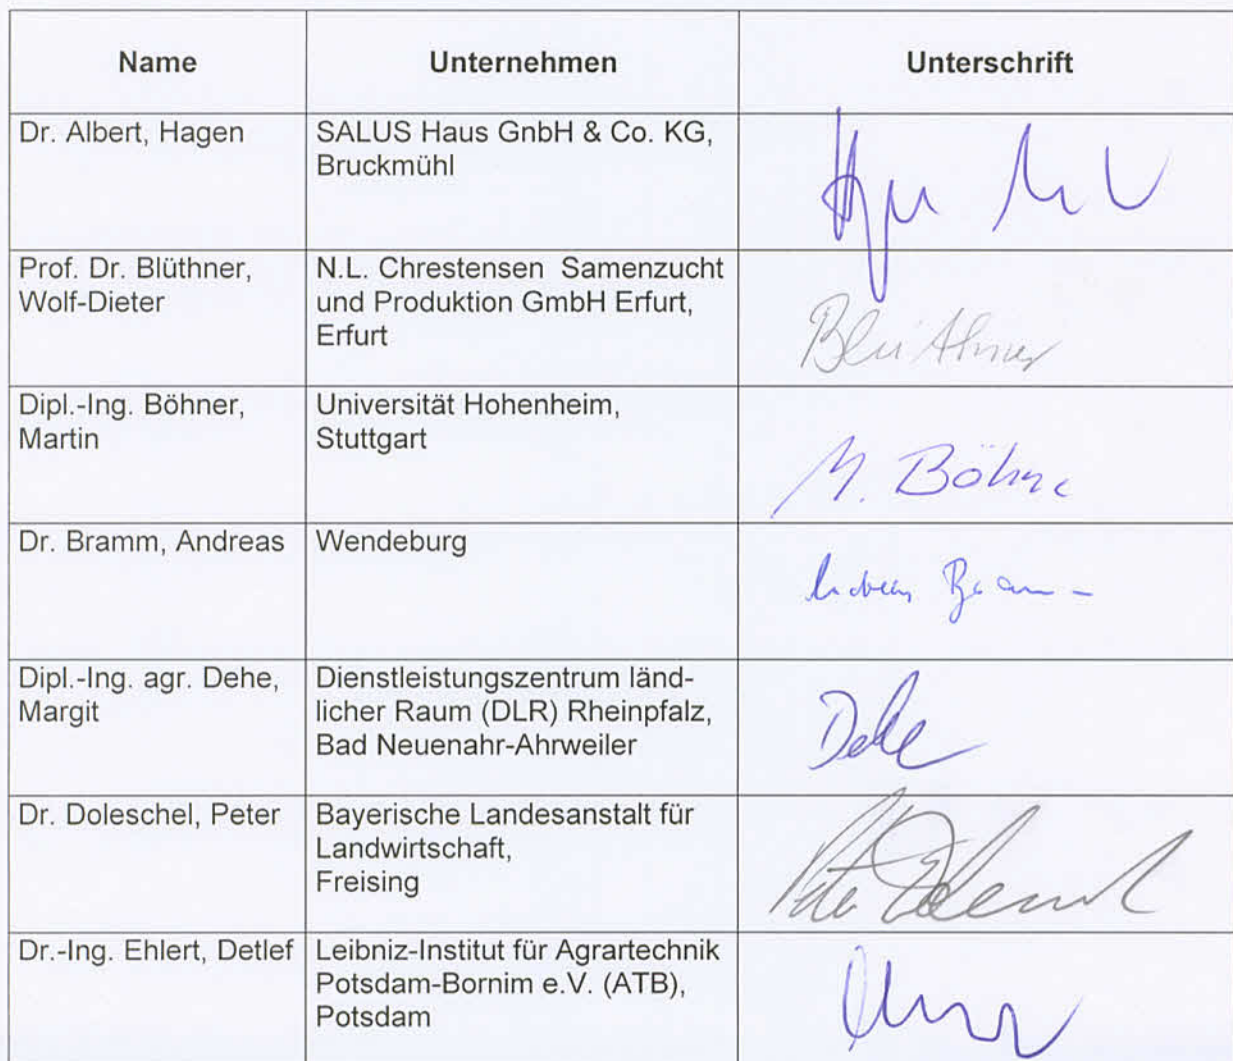 Name Unternehmen Unterschrift
Dr. Albert, Hagen SALUS Haus GnbH & Co. KG,
Bruckmühl
Prof. Dr. Blüthner, N.L. Chrestensen Samenzucht
Wolf-Dieter und Produktion GmbH Erfurt,
Erfurt
Blüthner
Dipl.-Ing. Böhner, Universität Hohenheim,
Martin Stuttgart
M. Böhne
Dr. Bramm, Andreas Wendeburg
Andreas Bramm
Dipl.-Ing. agr. Dehe, Dienstleistungszentrum länd-
Margit licher Raum (DLR) Rheinpfalz,
Bad Neuenahr-Ahrweiler
Dehe
Dr. Doleschel, Peter Bayerische Landesanstalt für
Landwirtschaft,
Freising
Dr.-Ing. Ehlert, Detlef Leibniz-Institut für Agrartechnik
Potsdam-Bornim e.V. (ATB),
Potsdam